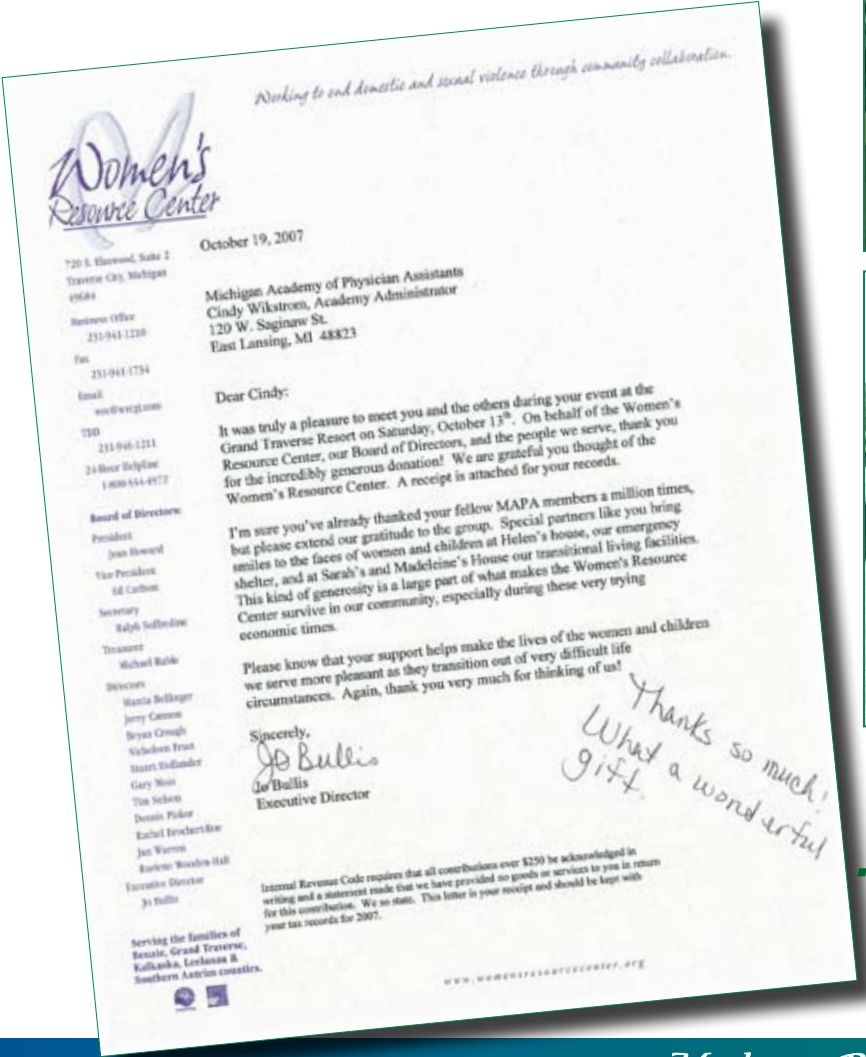 Working to end domestic and sexual violence through community collaboration.
Women's
Resource Center
720 S. Elmwood, Suite 2
Traverse City, Michigan
49684
Business Office
231-941-1210
Fax
231-941-1734
Email
TDD
231-946-1211
24-Hour Helpline
1-800-554-4972
Board of Directors:
President
Jean Howard
Vice President
Ed Carlson
Secretary
Ralph
Treasurer
Michael
Directors
Marcia Bellinger
Jerry Cannon
Bryan Crough
Nicholeen Frusti
Stuart Hollander
Gary Moss
Tim Nelson
Dennis
Rachel
Jan Warren
Wooden-Hall
Executive Director
Jo Bullis
Serving the families of
Benzie, Grand Traverse,
Kalkaska, Leelanau &
Southern Antrim counties.
October 19, 2007
Michigan Academy of Physician Assistants
Cindy Wikstrom, Academy Administrator
120 W. Saginaw St.
East Lansing, MI 48823
Dear Cindy:
It was truly a pleasure to meet you and the others during your event at the
Grand Traverse Resort on Saturday, October 13th. On behalf of the Women's
Resource Center, our Board of Directors, and the people we serve, thank you
for the incredibly generous donation! We are grateful you thought of the
Women's Resource Center. A receipt is attached for your records.
I'm sure you've already thanked your fellow MAPA members a million times,
but please extend our gratitude to the group. Special partners like you bring
smiles to the faces of women and children at Helen's house, our emergency
shelter, and at Sarah's and Madeleine's House our transitional living facilities.
This kind of generosity is a large part of what makes the Women's Resource
Center survive in our community, especially during these very trying
economic times.
Please know that your support helps make the lives of the women and children
we serve more pleasant as they transition out of very difficult life
circumstances. Again, thank you very much for thinking of us!
Sincerely,
Jo Bullis
Jo Bullis
Executive Director
Thanks so much!
What a wonderful
gift.
Internal Revenue Code requires that all contributions over $250 be acknowledged in
writing and a statement made that we have provided no goods or services to you in return
for this contribution. We so state. This letter is your receipt and should be kept with
your tax records for 2007.
www.womensresourcecenter.org